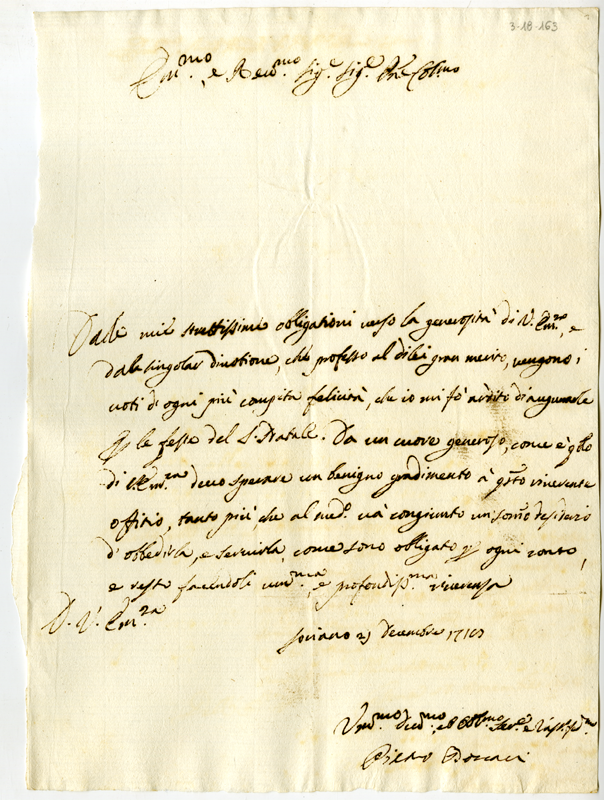 3-18-163
Em.mo e Rev.mo Sig.r Sig.r P.ne Col.mo
Dalle mie strettissime obligationi verso la generosità di V. Em.za, e
dala singolar divotione, che professo al di lei gran merito, vengono i
voti di ogni più compita felicità, che io mi fò ardito di augurarle
per le feste del S. Natale. Da un cuore generoso, come è q.lo
di V. Em.za devo sperare un benigno gradimento à q.sto riverente
offitio, tanto più che al med.o và congiunto un som.o desiderio
d'obbedirla, e servirla, come sono obligato per ogni conto,
e resto facendoli um.ma, e profondiss.ma riverenza
D. V. Em.za
Soriano 23 Decembre
Um.mo Dev.mo et Obl.mo Ser.e
Pietro